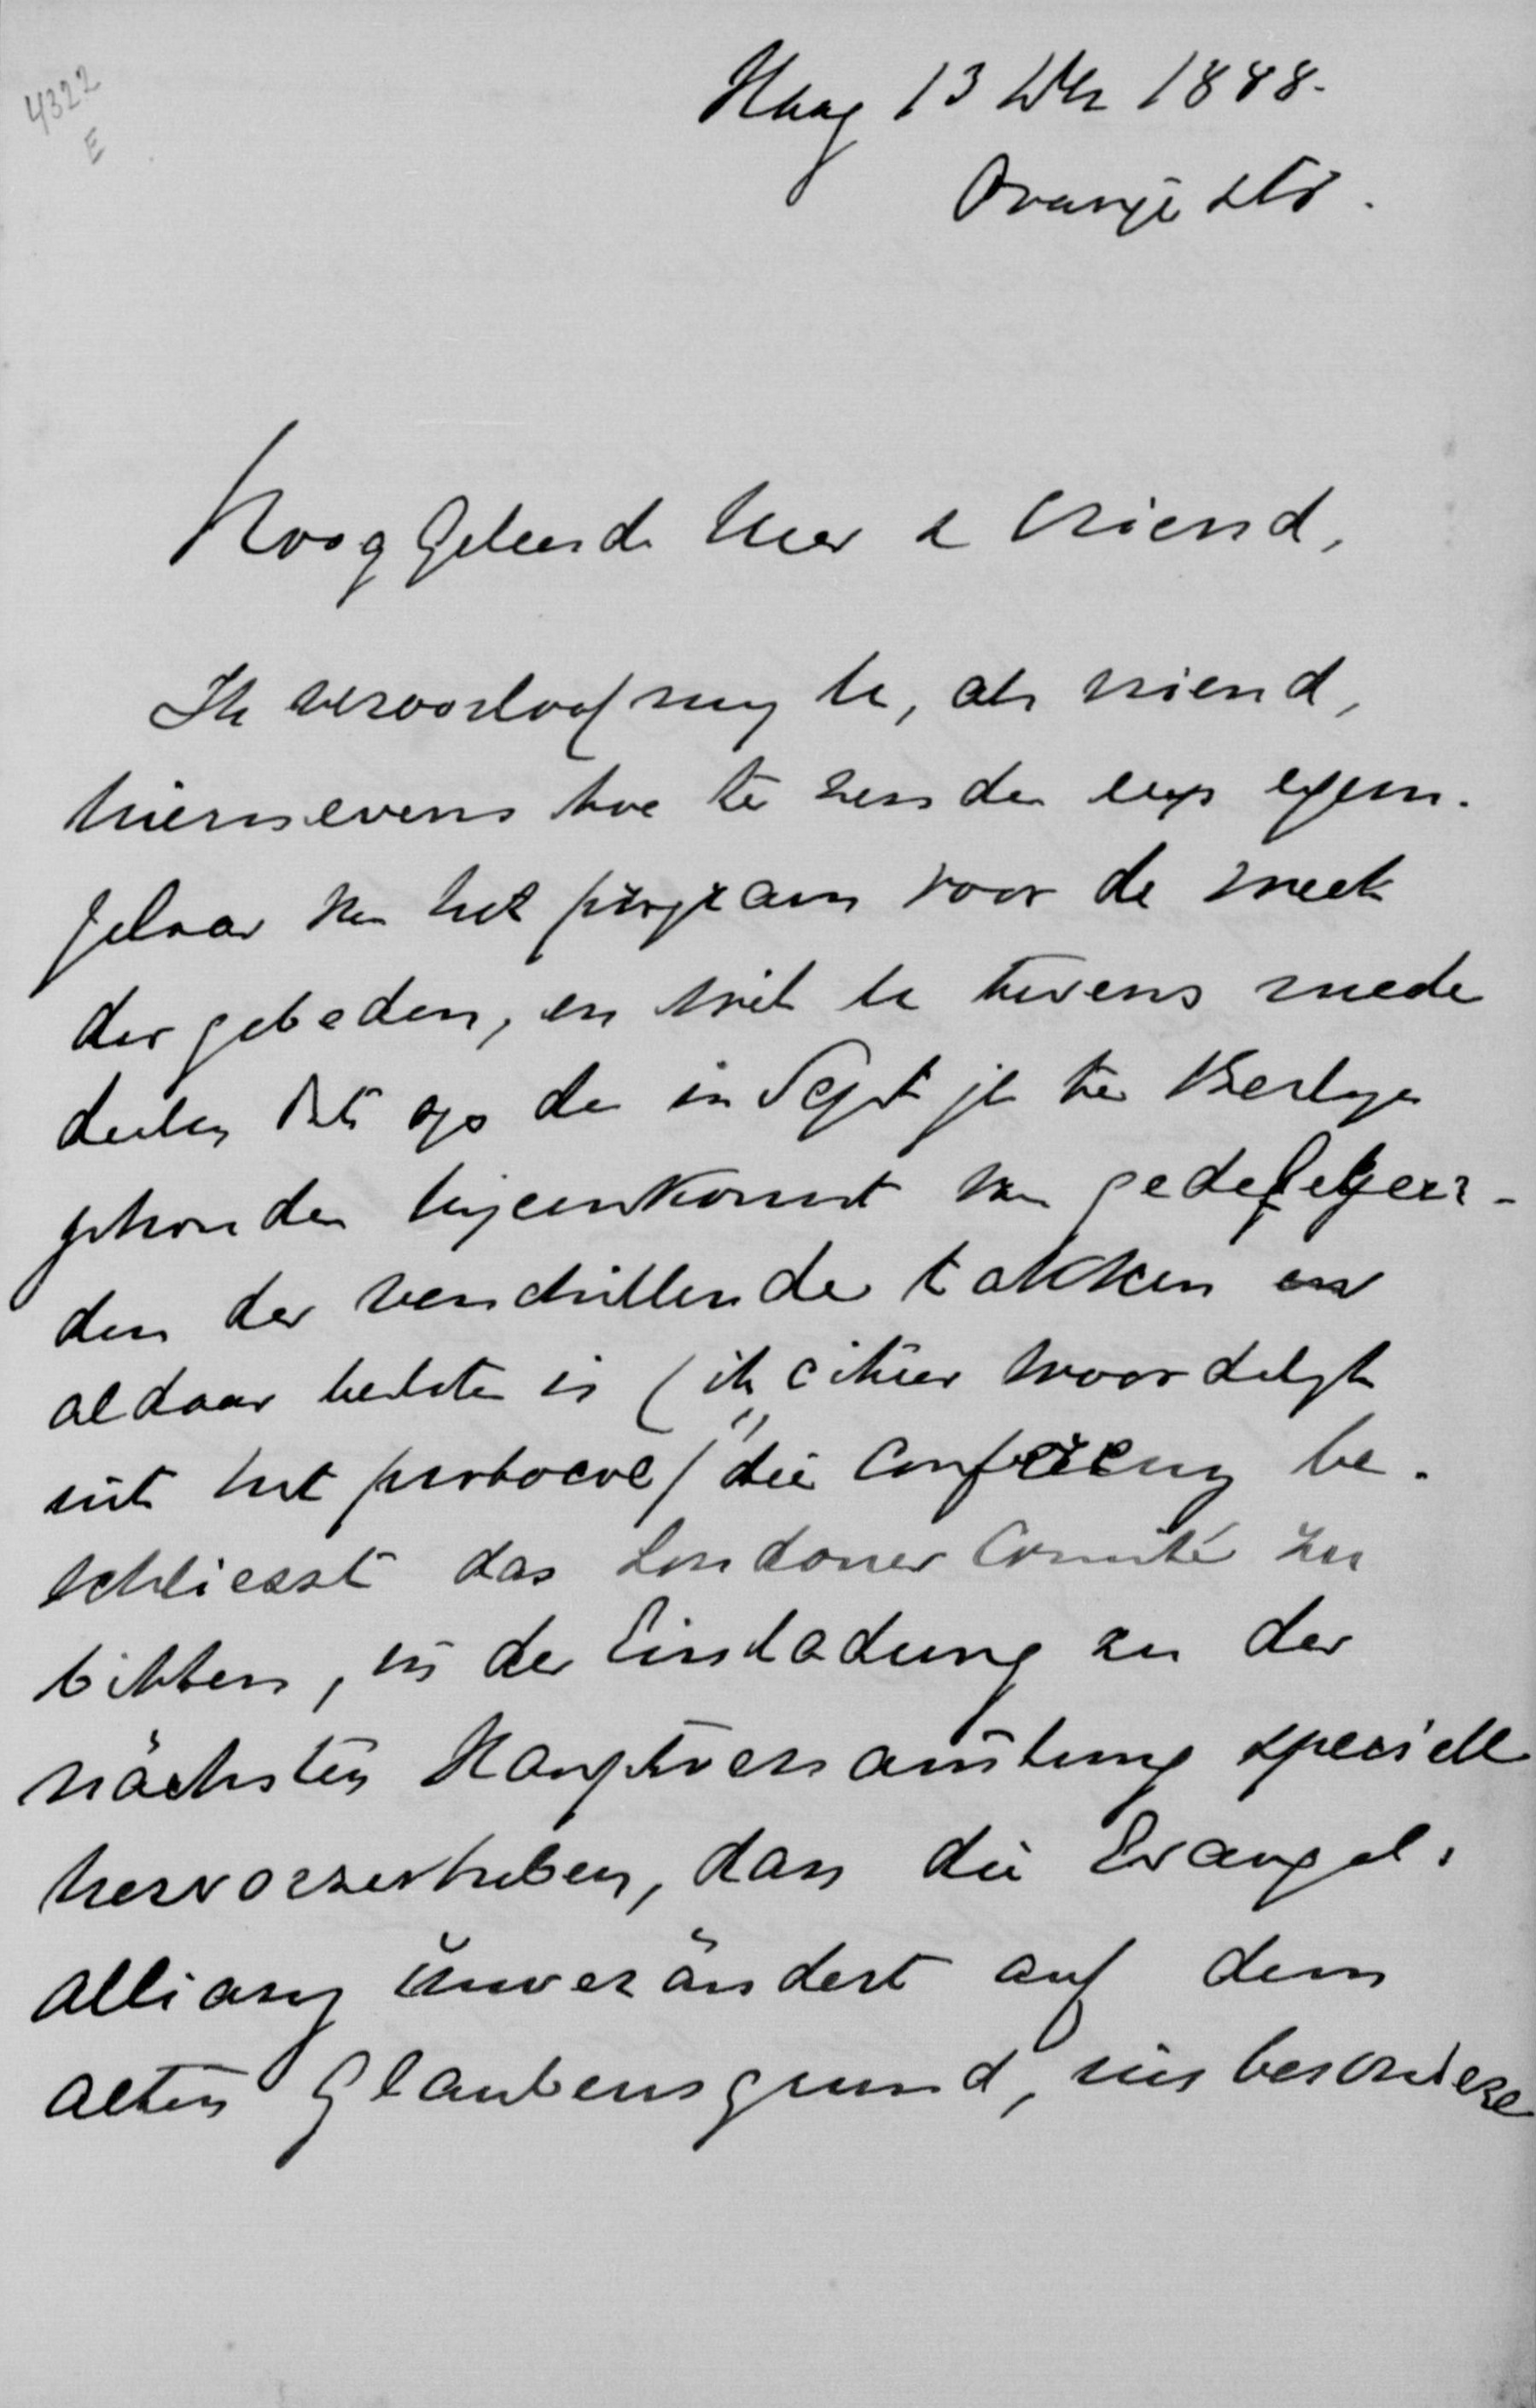 4322
E
Haag 13 Dec 1888.
Oranje str.
Hoog Geleerde Heer & Vriend,
Ik veroorloof mij U, als vriend,
hiernevens toe te zenden een exem-
plaar van het program voor de week
der gebeden, en wil U tevens mede
deelen dat op de in Sept jl te Berlijn
gehouden bijeenkomst van gedelegeer-
den der verschillende takken
aldaar besloten is (ik citeer woordelijk
uit het protocol) "die Conferenz be-
schliesst das Londoner Comité zu
bitten, in der Einladung zu der
nächsten Hauptversammlung speciell
hervorzuheben, dass die Evangel.
Allianz unverändert auf dem
alten Glaubensgrund, insbesondere